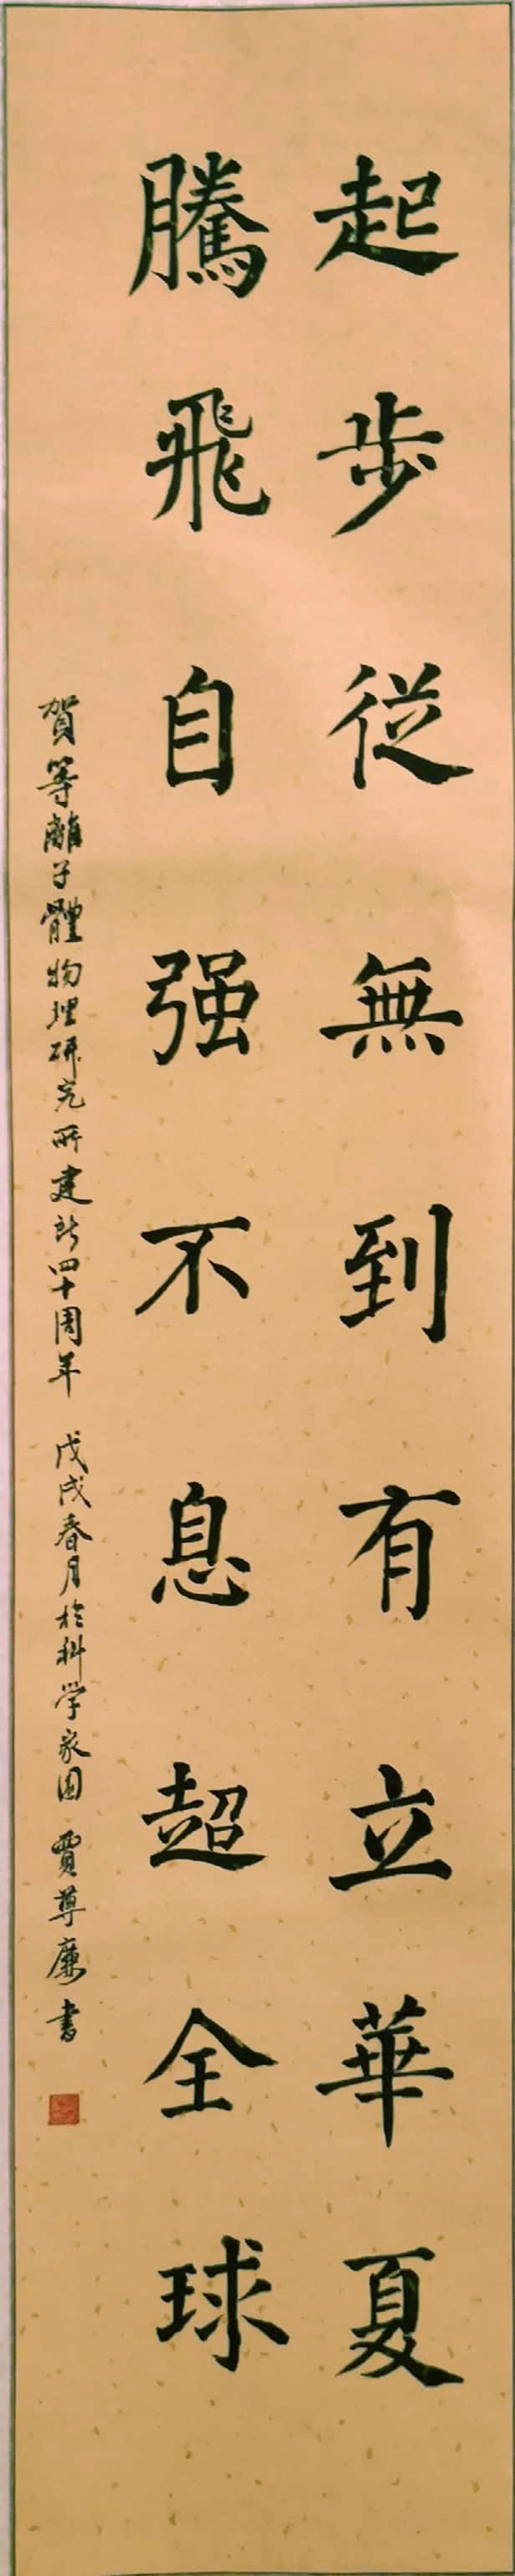 起步從無到有立華夏
騰飛自强不息超全球
賀等離子體物理研究所建所四十周年 戊戌春月於科学家园 賈尊廉书